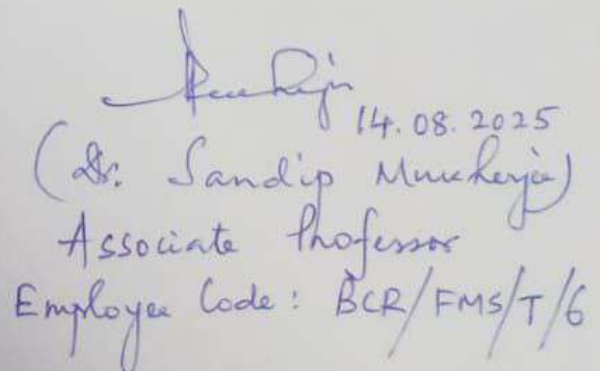 14.08.2025
(Dr. Sandip Mukherjee)
Associate Professor
Employee Code: BCR/FMS/T/6